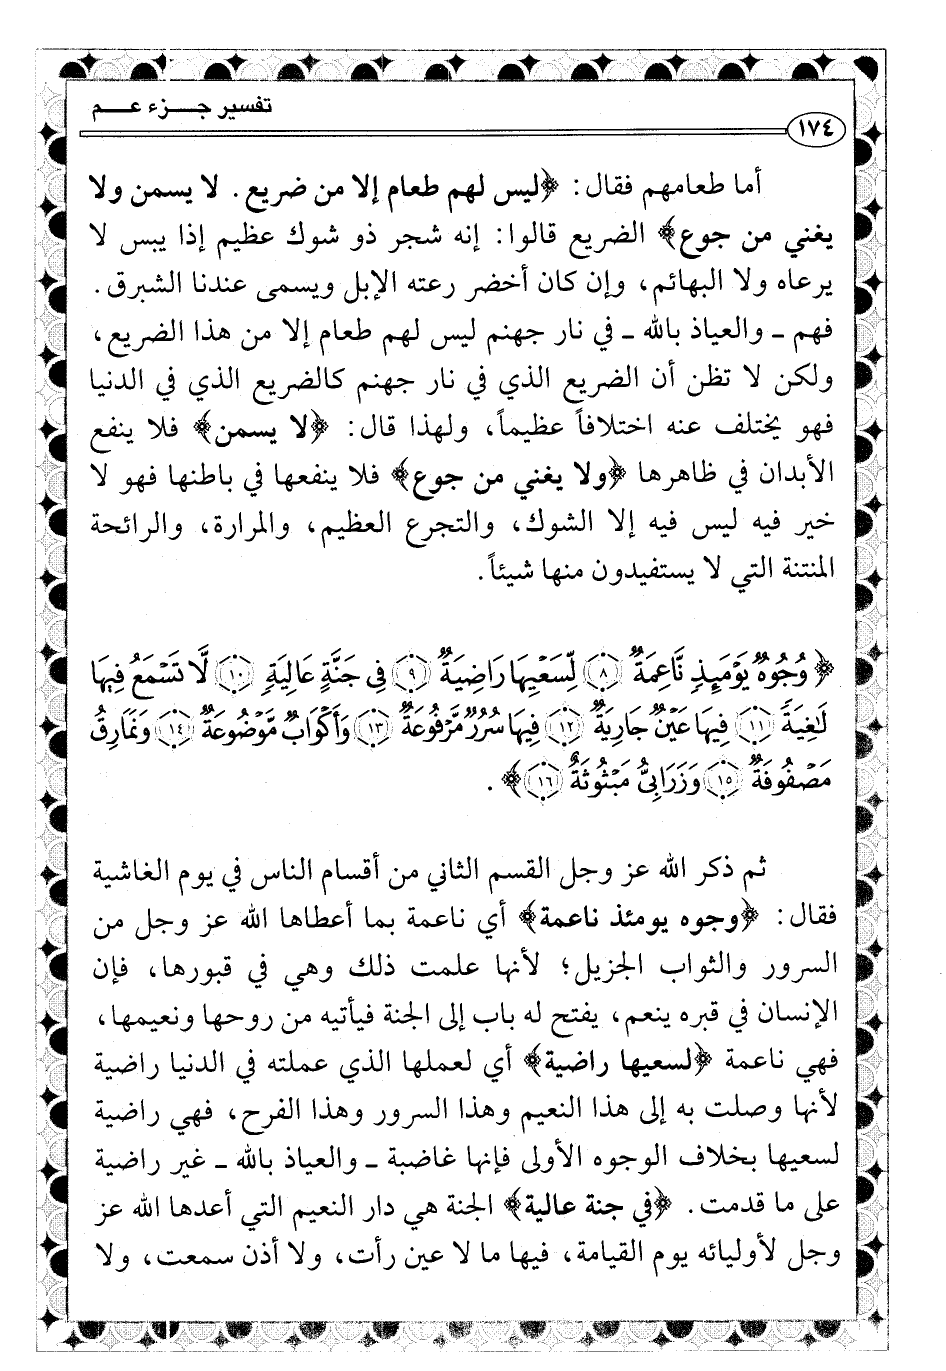 تفسير جـــزء عـــم
١٧٤
أما طعامهم فقال: ﴿ليس لهم طعام إلا من ضريع. لا يسمن ولا
يغني من جوع﴾ الضريع قالوا: إنه شجر ذو شوك عظيم إذا يبس لا
يرعاه ولا البهائم، وإن كان أخضر رعته الإبل ويسمى عندنا الشبرق.
فهم ـ والعياذ بالله ـ في نار جهنم ليس لهم طعام إلا من هذا الضريع،
ولكن لا تظن أن الضريع الذي في نار جهنم كالضريع الذي في الدنيا
فهو يختلف عنه اختلافاً عظيماً، ولهذا قال: ﴿لا يسمن﴾ فلا ينفع
الأبدان في ظاهرها ﴿ولا يغني من جوع﴾ فلا ينفعها في باطنها فهو لا
خير فيه ليس فيه إلا الشوك، والتجرع العظيم، والمرارة، والرائحة
المنتنة التي لا يستفيدون منها شيئاً.
﴿وُجُوهٌ يَوْمَئِذٍ نَّاعِمَةٌ ﴿٨﴾ لِّسَعْيِهَا رَاضِيَةٌ ﴿٩﴾ فِي جَنَّةٍ عَالِيَةٍ ﴿١٠﴾ لَّا تَسْمَعُ فِيهَا
لَـٰغِيَةً ﴿١١﴾ فِيهَا عَيْنٌ جَارِيَةٌ ﴿١٢﴾ فِيهَا سُرُرٌ مَّرْفُوعَةٌ ﴿١٣﴾ وَأَكْوَابٌ مَّوْضُوعَةٌ ﴿١٤﴾ وَنَمَارِقُ
مَصْفُوفَةٌ ﴿١٥﴾ وَزَرَابِيُّ مَبْثُوثَةٌ ﴿١٦﴾﴾.
ثم ذكر الله عز وجل القسم الثاني من أقسام الناس في يوم الغاشية
فقال: ﴿وجوه يومئذ ناعمة﴾ أي ناعمة بما أعطاها الله عز وجل من
السرور والثواب الجزيل؛ لأنها علمت ذلك وهي في قبورها، فإن
الإنسان في قبره ينعم، يفتح له باب إلى الجنة فيأتيه من روحها ونعيمها،
فهي ناعمة ﴿لسعيها راضية﴾ أي لعملها الذي عملته في الدنيا راضية
لأنها وصلت به إلى هذا النعيم وهذا السرور وهذا الفرح، فهي راضية
لسعيها بخلاف الوجوه الأولى فإنها غاضبة ـ والعياذ بالله ـ غير راضية
على ما قدمت. ﴿في جنة عالية﴾ الجنة هي دار النعيم التي أعدها الله عز
وجل لأوليائه يوم القيامة، فيها ما لا عين رأت، ولا أذن سمعت، ولا